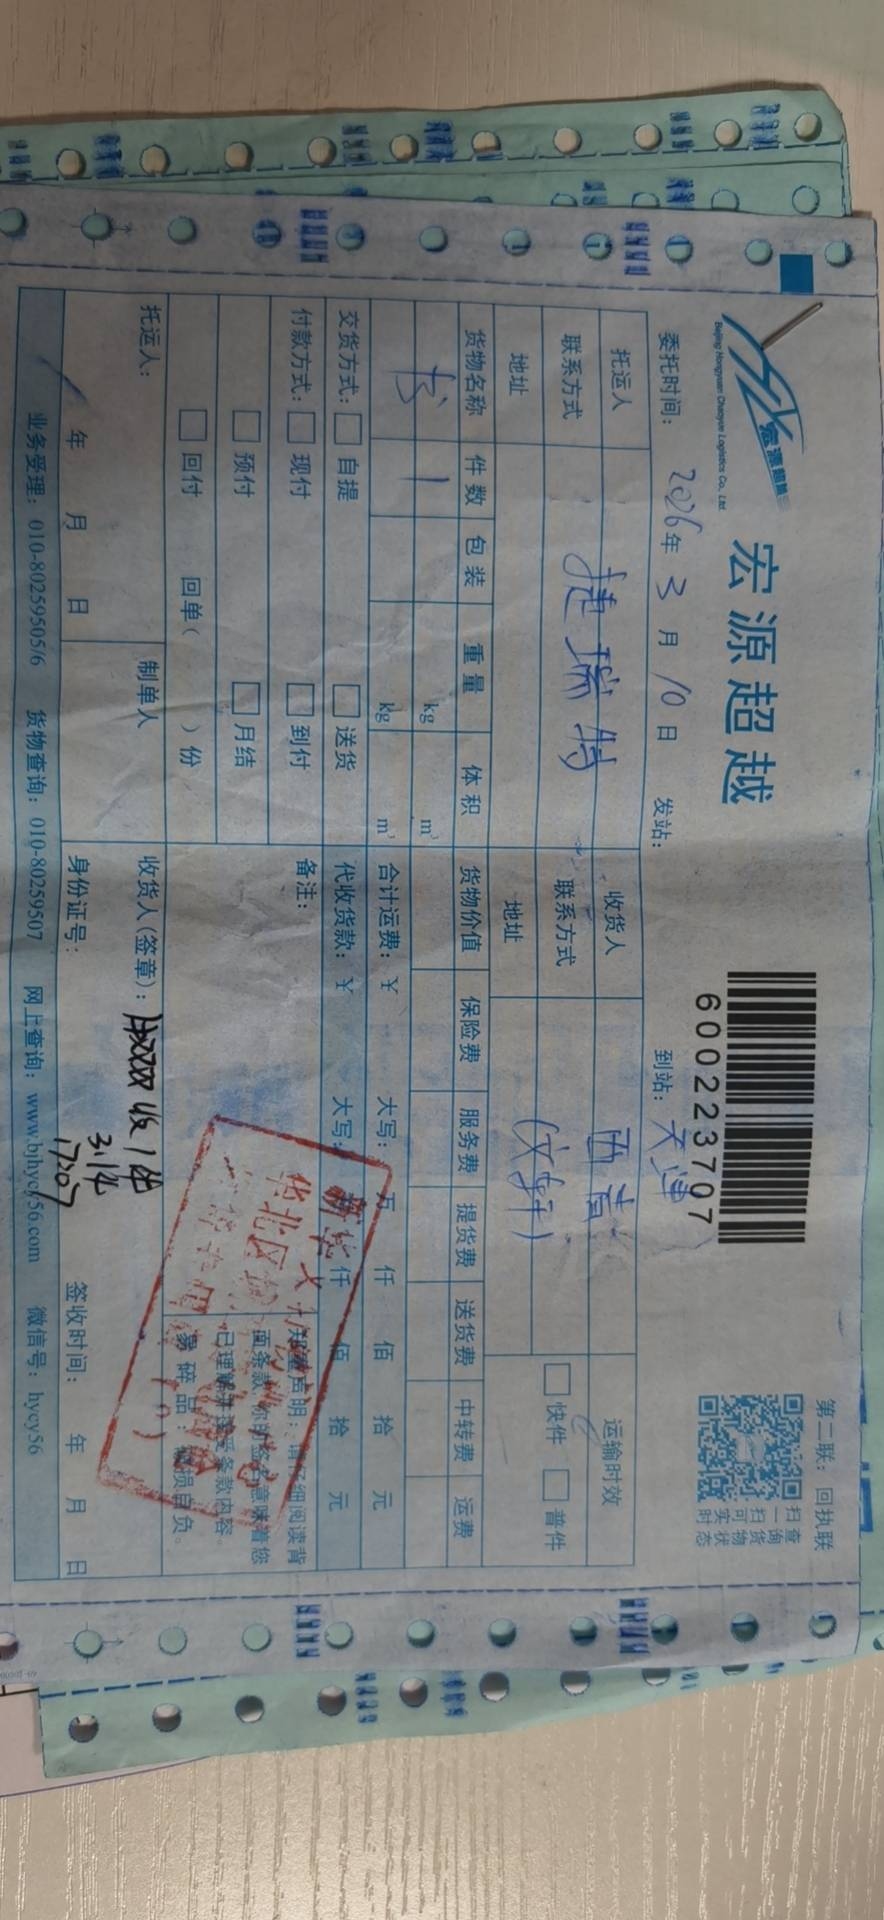 宏源超越
宏源超越
Beijing Hongyuan Chaoyue Logistics Co., Ltd.
600223707
第二联：回执联
扫一扫可实时
查询货物状态
委托时间：2026年3月10日 发站： 到站：天津
托运人 捷瑞特 收货人 西青 运输时效
联系方式 联系方式 (文轩) 快件 普件
地址 地址
货物名称 件数 包装 重量 体积 货物价值 保险费 服务费 提货费 送货费 中转费 运费
书 1 kg m³
kg m³ 合计运费：¥ 大写： 万 仟 佰 拾 元
交货方式： 自提 送货 代收货款：¥ 大写： 仟 佰 拾 元
付款方式： 现付 到付 备注：
预付 月结
回付 回单( )份
郑重声明：请仔细阅读背
面条款，你的签名意味着您
已理解并接受条款内容。
易碎品：破损自负。
华北区
托运人： 制单人 收货人(签章)： 收1件
3.14
17207
年 月 日 身份证号： 签收时间： 年 月 日
业务受理：010-80259505/6 货物查询：010-80259507 网上查询：www.bjhycy56.com 微信号：hycy56